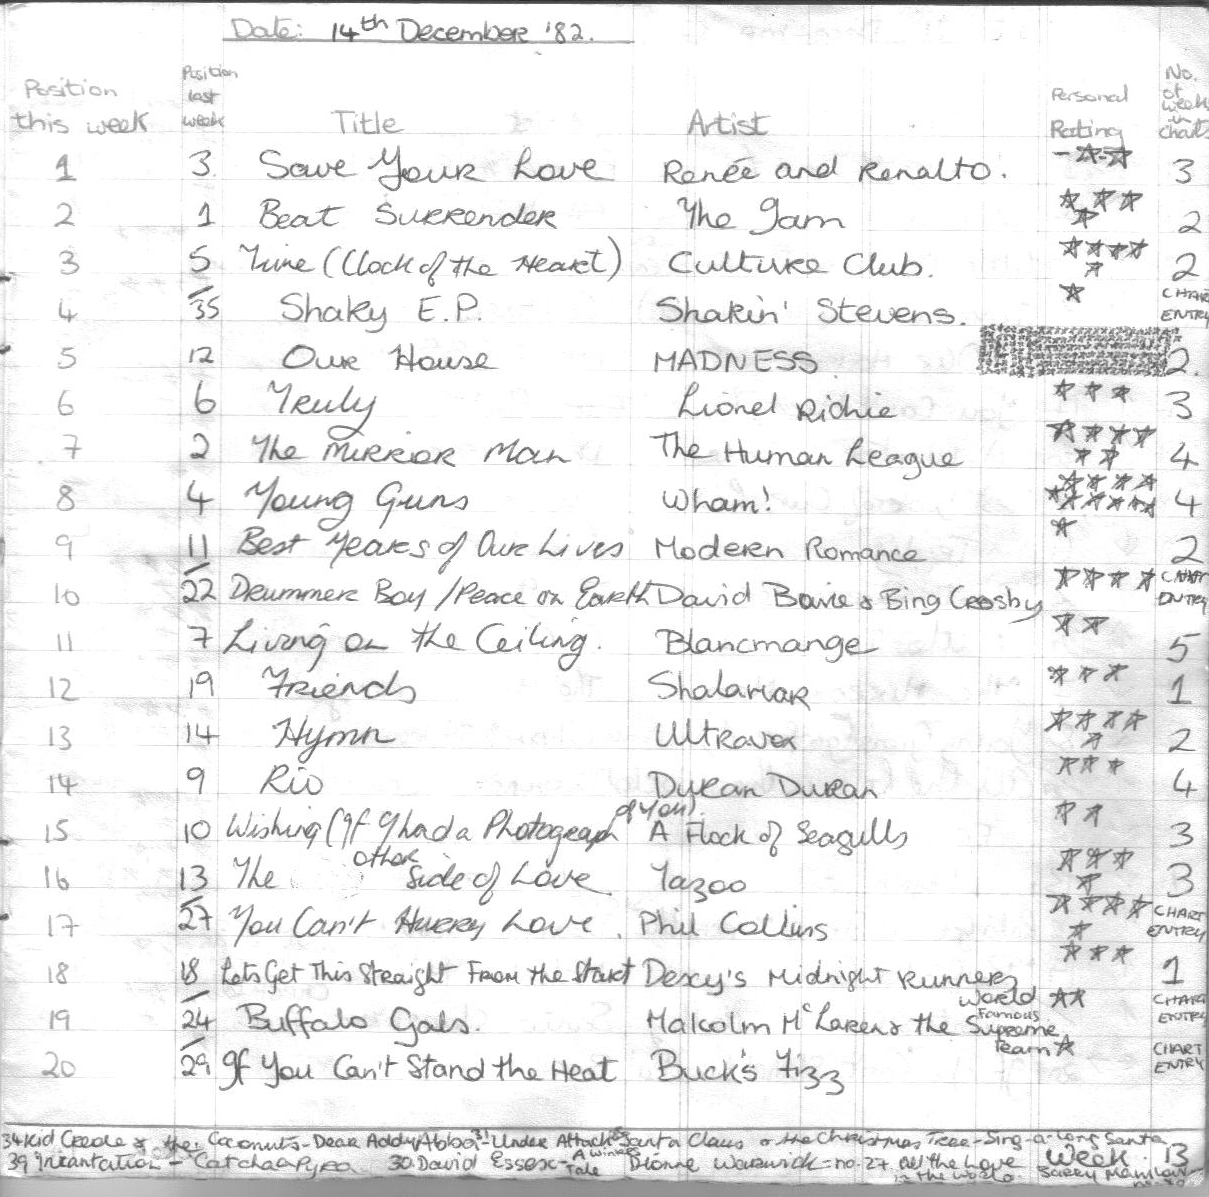 Date: 14th December '82.
Position this week Position last week Title Artist Personal Rating No. of weeks in charts
1 3 Save Your Love Renée and Renalto. 3
2 1 Beat Surrender The Jam 2
3 5 Time (Clock of the Heart) Culture Club. 2
4 35 Shaky E.P. Shakin' Stevens. CHART ENTRY
5 12 Our House MADNESS 2.
6 6 Truly Lionel Richie 3
7 2 The Mirror Man The Human League 4
8 4 Young Guns Wham! 4
9 11 Best Years of Our Lives Modern Romance 2
10 22 Drummer Boy / Peace on Earth David Bowie & Bing Crosby CHART ENTRY
11 7 Living on the Ceiling. Blancmange 5
12 19 Friends Shalamar 1
13 14 Hymn Ultravox 2
14 9 Rio Duran Duran 4
15 10 Wishing (If I had a Photograph of You). A Flock of Seagulls 3
16 13 The other Side of Love. Yazoo 3
17 27 You Can't Hurry Love. Phil Collins CHART ENTRY
18 18 Lets Get This Straight From the Start Dexy's Midnight Runners 1
19 24 Buffalo Gals. Malcolm McLaren & the World Famous Supreme Team CHART ENTRY
20 29 If You Can't Stand the Heat Buck's Fizz CHART ENTRY
34 Kid Creole & the Coconuts - Dear Addy Abba 31 - Under Attack Santa Claus & the Christmas Tree - Sing-a-long Santa
39 Incantation - Cacharpaya 30. David Essex - A Winter's Tale Dionne Warwick - no. 27. All the Love in the World Week 13
Barry Manilow